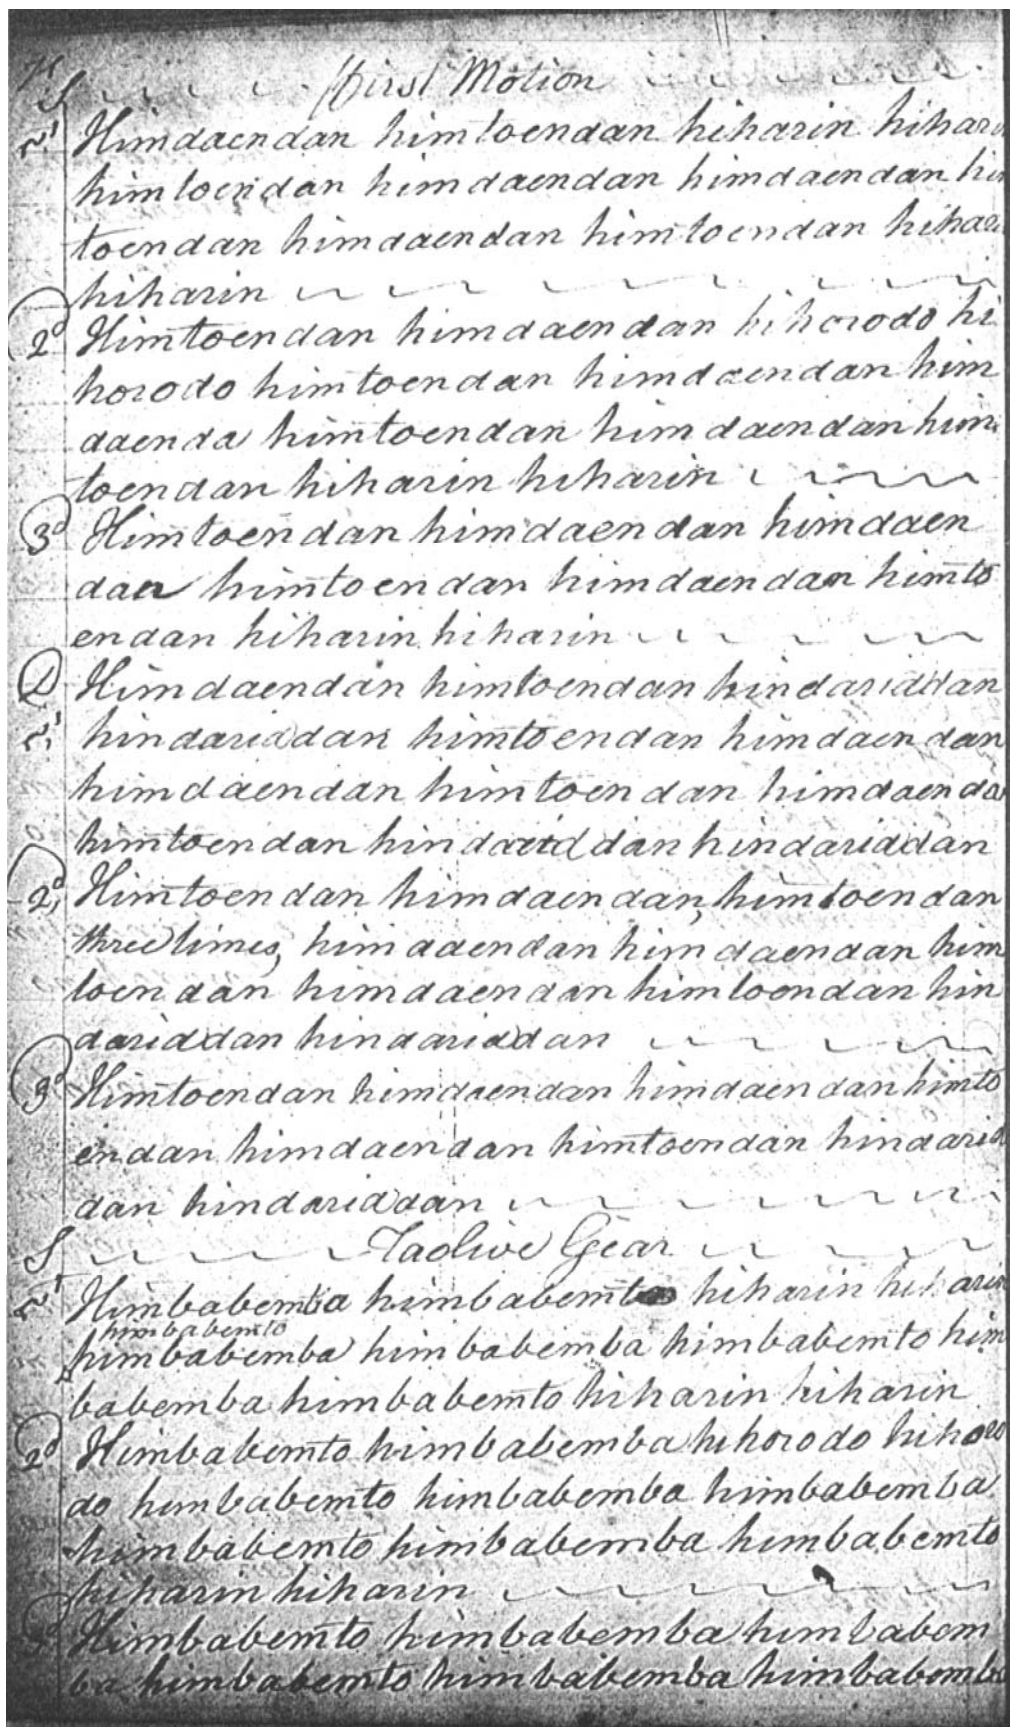 First Motion
1 Himdaendan himtoendan hiharin hiharin
himtoendan himdaendan himdaendan him
toendan himdaendan himtoendan hiharin
hiharin
2d Himtoendan himdaendan hihorodo hi
horodo himtoendan himdaendan him
daenda himtoendan himdaendan him
toendan hiharin hiharin
3d Himtoendan himdaendan himdaen
dan himtoendan himdaendan himto
endan hiharin hiharin
Himdaendan himtoendan hindariddan
hindariddan himtoendan himdaendan
himdaendan himtoendan himdaenda
himtoendan hindariddan hindariddan
2d, Himtoendan himdaendan, himtoendan
three times, himdaendan himdaendan him
toendan himdaendan himtoendan hin
dariddan hindariddan
3d Himtoendan himdaendan himdaendan himto
endan himdaendan himtoendan hindarid
dan hindariddan
Taolive Gear
Himbabemba himbabemto hiharin hiharin
himbabemto
himbabemba himbabemba himbabemto him
babemba himbabemto hiharin hiharin
2d Himbabemto himbabemba hihorodo hihoro
do himbabemto himbabemba himbabemba
himbabemto himbabemba himbabemto
hiharin hiharin
3d Himbabemto himbabemba himbabem
ba himbabemto himbabemba himbabemba